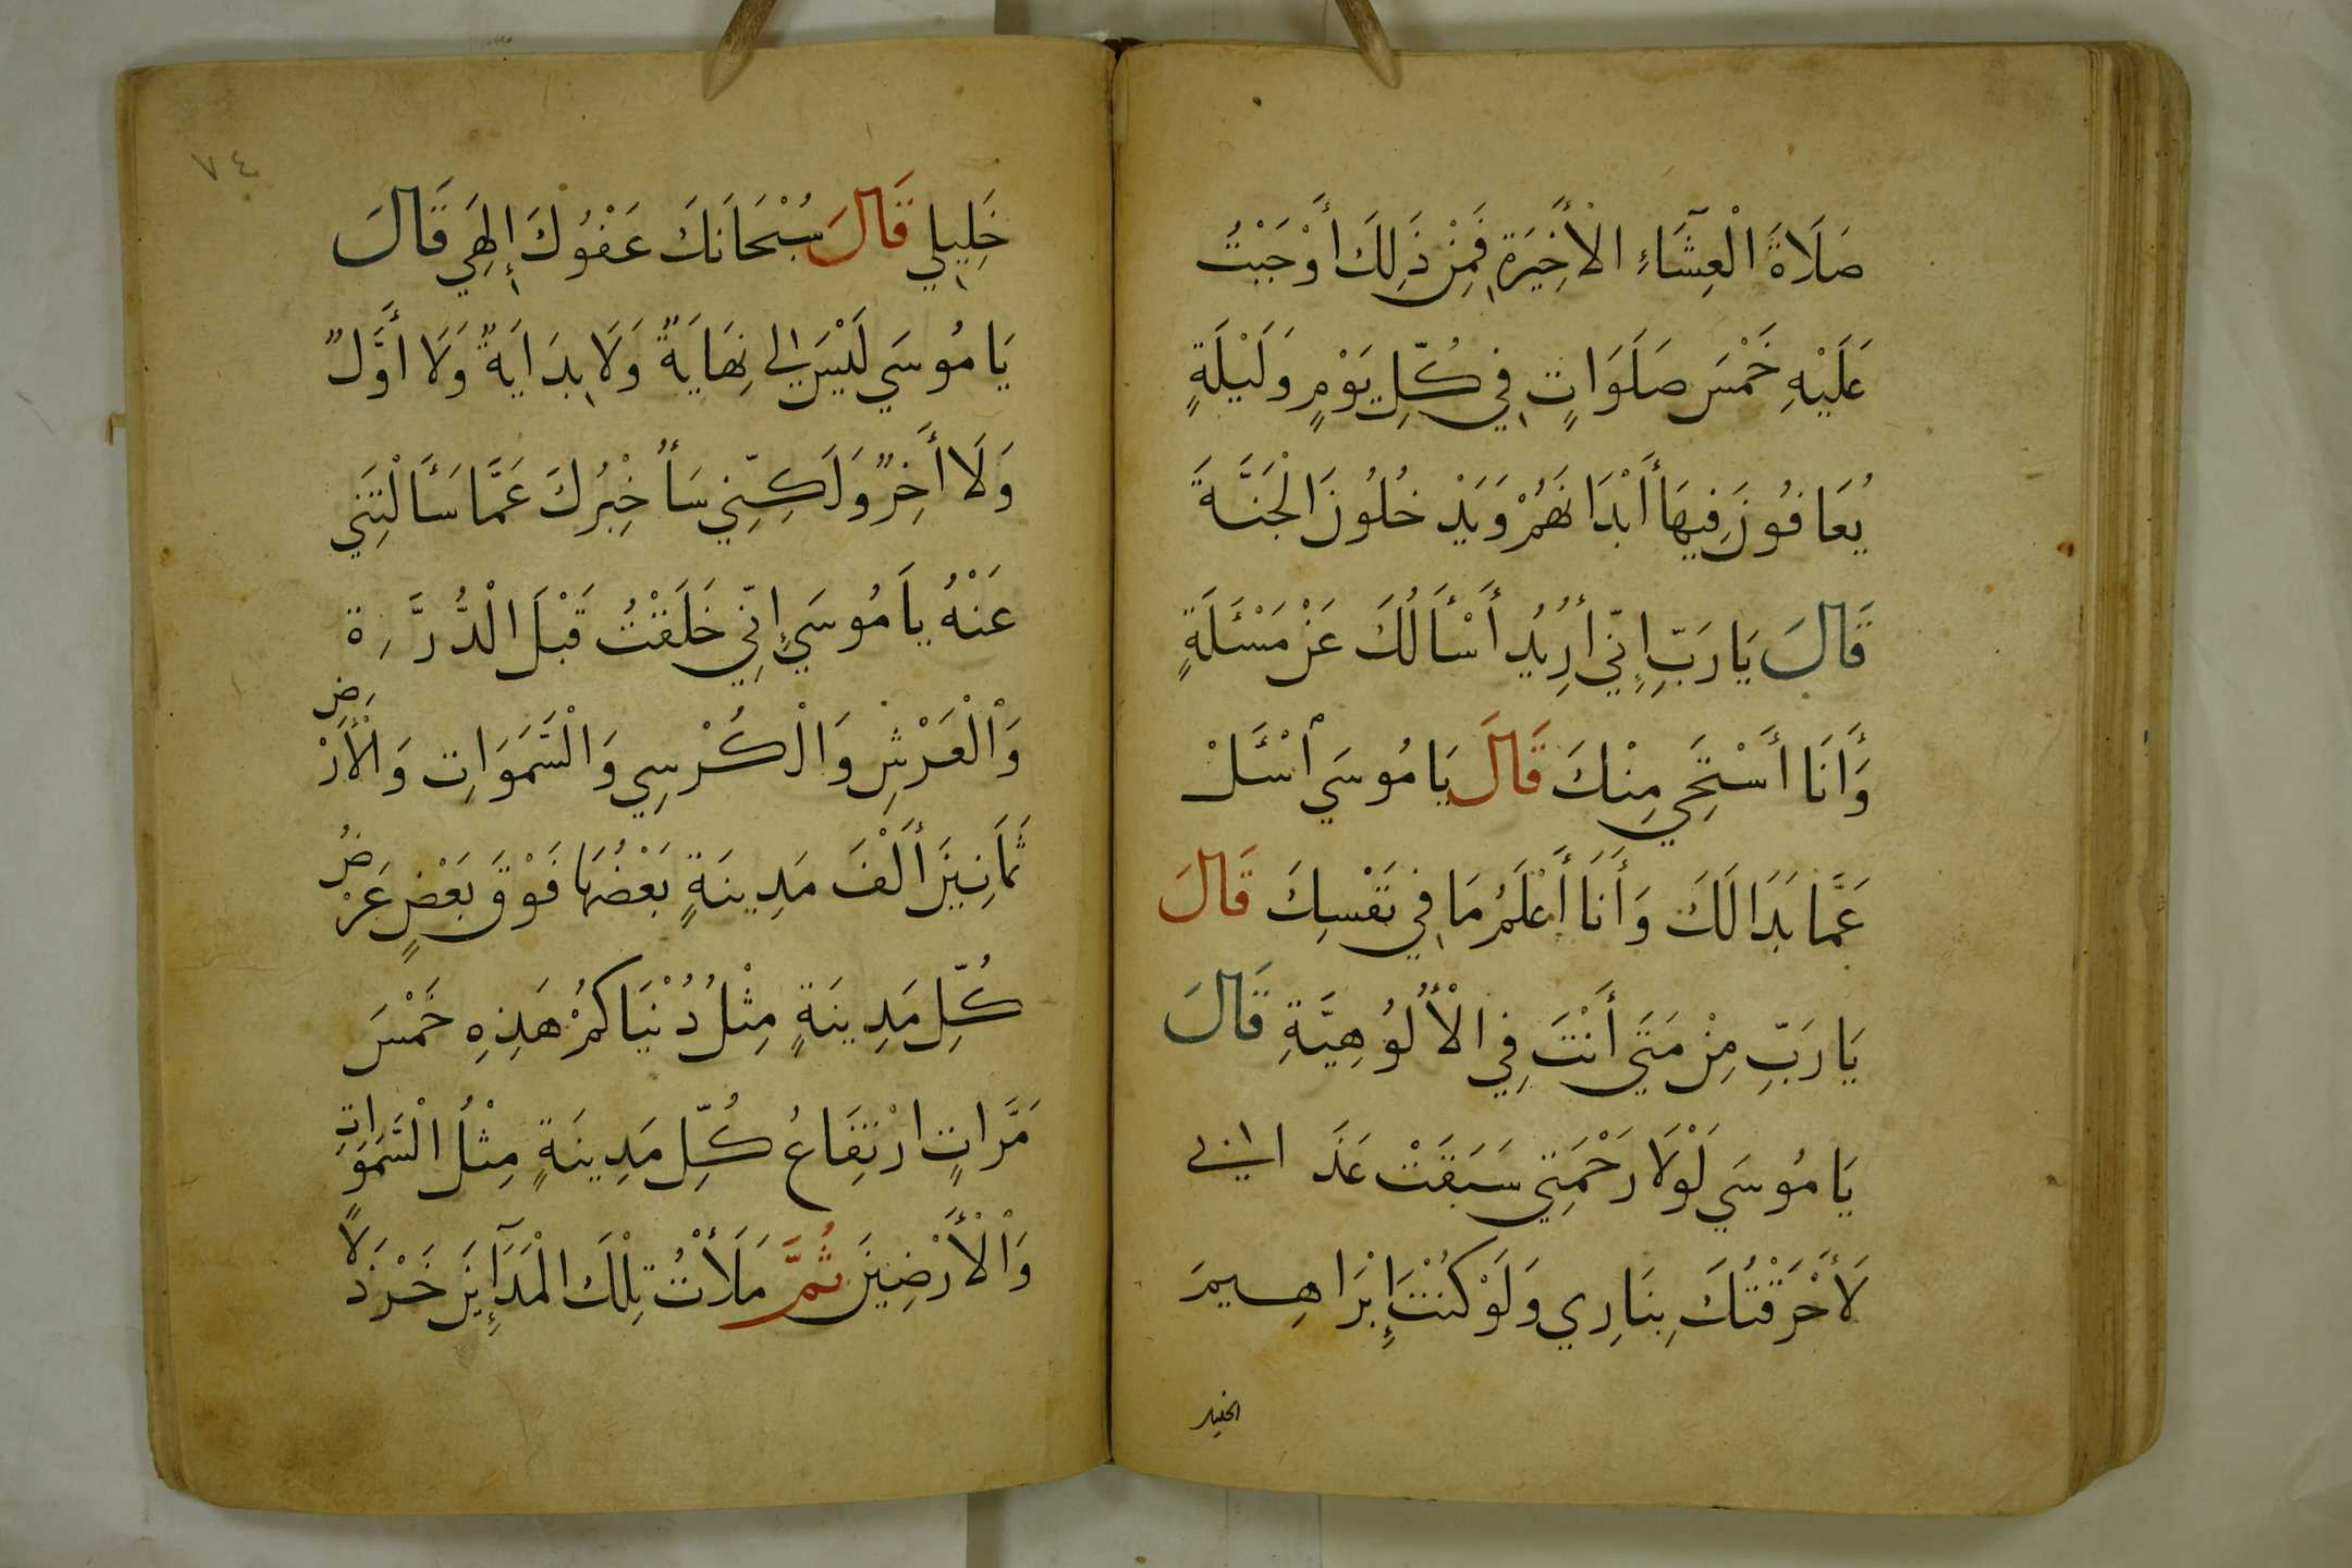 صَلَاةَ الْعِشَآءِ الْأَخِيرَةِ فَمِنْ ذَلِكَ أَوْجَبْتُ
عَلَيْهِ خَمْسَ صَلَوَاتٍ فِي كُلِّ يَوْمٍ وَلَيْلَةٍ
يُعَافُونَ فِيهَا أَبْدَانَهُمْ وَيَدْخُلُونَ الْجَنَّةَ
قَالَ يَا رَبِّ إِنِّي أُرِيدُ أَسْأَلُكَ عَنْ مَسْئَلَةٍ
وَأَنَا أَسْتَحِي مِنْكَ قَالَ يَا مُوسَي اسْئَلْ
عَمَّا بَدَا لَكَ وَأَنَا أَعْلَمُ مَا فِي نَفْسِكَ قَالَ
يَا رَبِّ مِنْ مَتَي أَنْتَ فِي الْأُلُوُهِيَّةِ قَالَ
يَا مُوسَي لَوْلَا رَحْمَتِي سَبَقَتْ عَذَابِي
لَأَحْرَقْتُكَ بِنَارِي وَلَوْ كُنْتَ إِبْرَاهِيمَ
الخليل
٧٤
خَلِيلِي قَالَ سُبْحَانَكَ عَفْوُكَ إِلَهِي قَالَ
يَا مُوسَي لَيْسَ لِي نِهَايَةٌ وَلَا بِدَايَةٌ وَلَا أَوَّلٌ
وَلَا أَخِرٌ وَلَكِنِّي سَأُخْبِرُكَ عَمَّا سَأَلْتَنِي
عَنْهُ يَا مُوسَي إِنِّي خَلَقْتُ قَبْلَ الْدُّرَّةِ
وَالْعَرْشِ وَالْكُرْسِي وَالْسَّمَوَاتِ وَالْأَرْضِ
ثَمَانِينَ أَلْفَ مَدِينَةٍ بَعْضُهَا فَوْقَ بَعْضٍ عَرْضُ
كُلِّ مَدِينَةٍ مِثْلُ دُنْيَاكُمْ هَذِهِ خَمْسَ
مَرَّاتٍ ارْتِفَاعُ كُلِّ مَدِينَةٍ مِثْلُ الْسَّمَوَاتِ
وَالْأَرْضِينَ ثُمَّ مَلَأْتُ تِلْكَ الْمَدَآئِنَ خَرْدَلًا